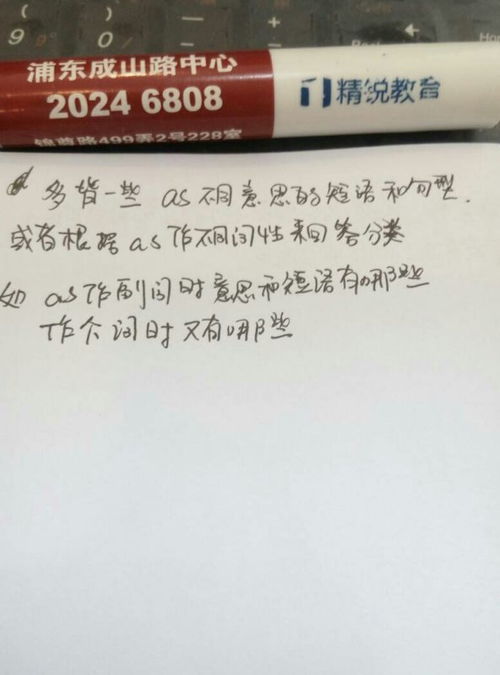 ( )
9 0
浦东成山路中心
2024 6808
锦尊路499弄2号228室
精锐教育
多背一些 as不同意思的短语和句型.
或者根据as作不同词性来回答分类
如 as作副词时意思和短语有哪些
作介词时又有哪些